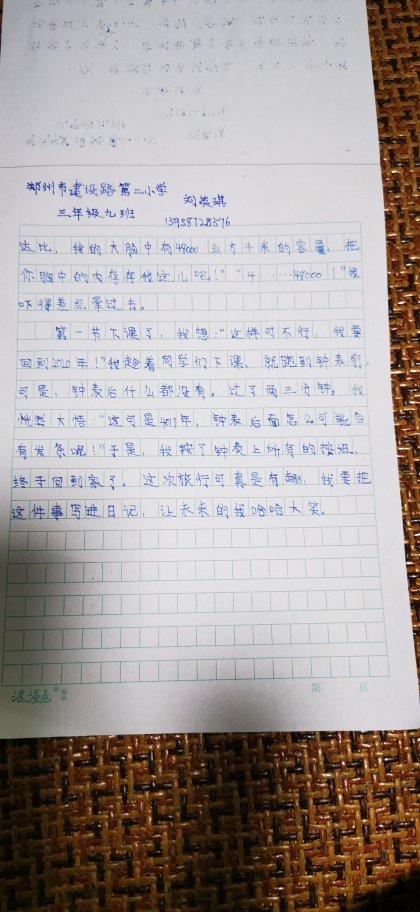 郑州市建设路第二小学
刘俊琪
三年级九班
13938728576
达比，我的大脑中有49000立方千米的容量，把
你脑中的内存存我这儿吧！”“4……49000！”我
吓得差点晕过去。
第一节下课了，我想：“这样可不行，我要
回到2020年！”我趁着同学们下课，就跑到钟表前，
可是，钟表后什么都没有。过了两三分钟，我
恍然大悟：“这可是4017年，钟表后面怎么可能会
有发条呢！”于是，我按了钟表上所有的按钮，
终于回到家了。这次旅行可真是有趣，我要把
这件事写进日记，让未来的我哈哈大笑。
浪漫色
第 页